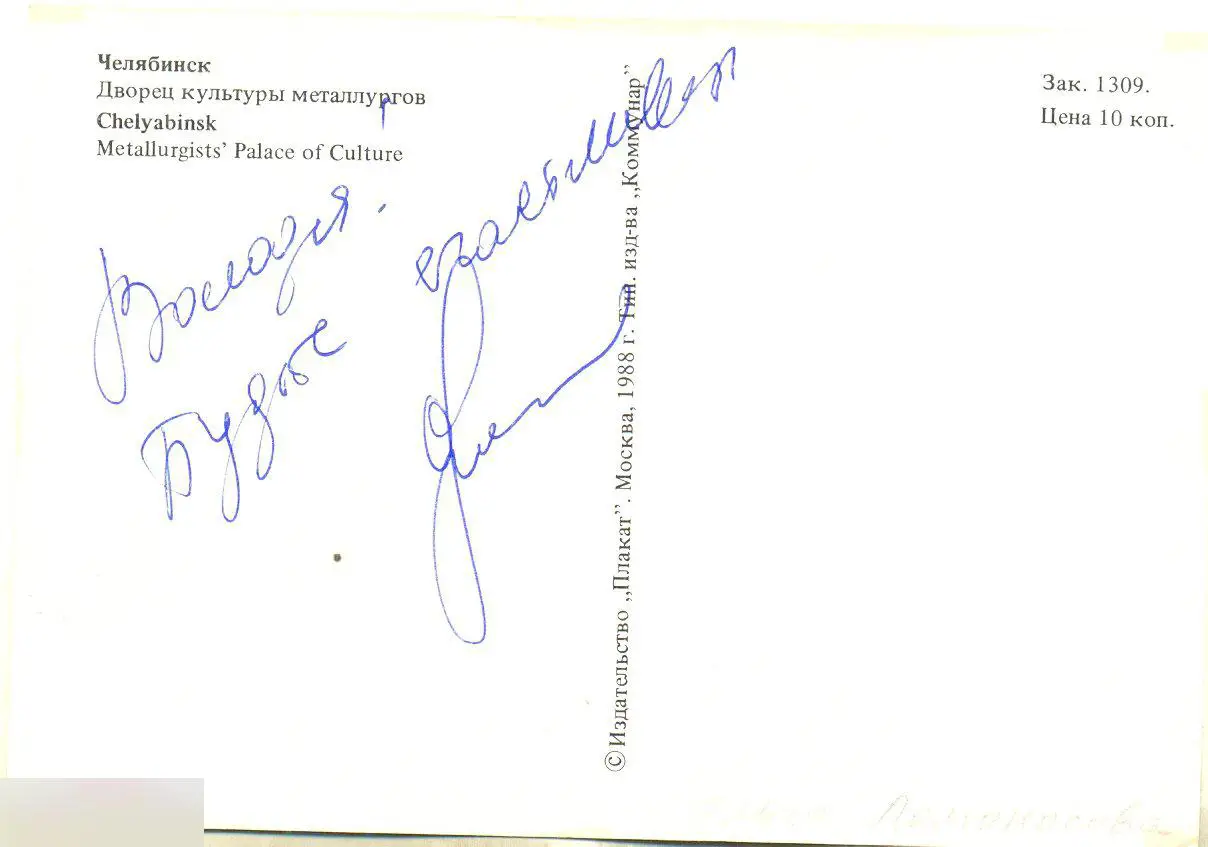 Челябинск
Дворец культуры металлургов
Chelyabinsk
Metallurgists' Palace of Culture
Володя!
Будьте
счастливы
© Издательство „Плакат”. Москва, 1988 г. Тип. изд-ва „Коммунар”
Зак. 1309.
Цена 10 коп.
Ломоносова